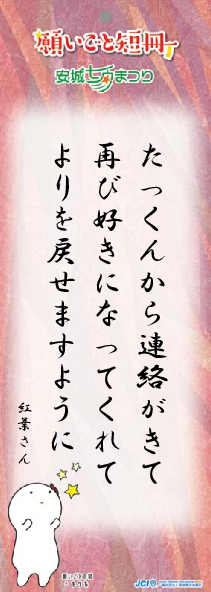 願いごと短冊
安城七夕まつり
たっくんから連絡がきて
再び好きになってくれて
よりを戻せますように
紅葉さん
JCI